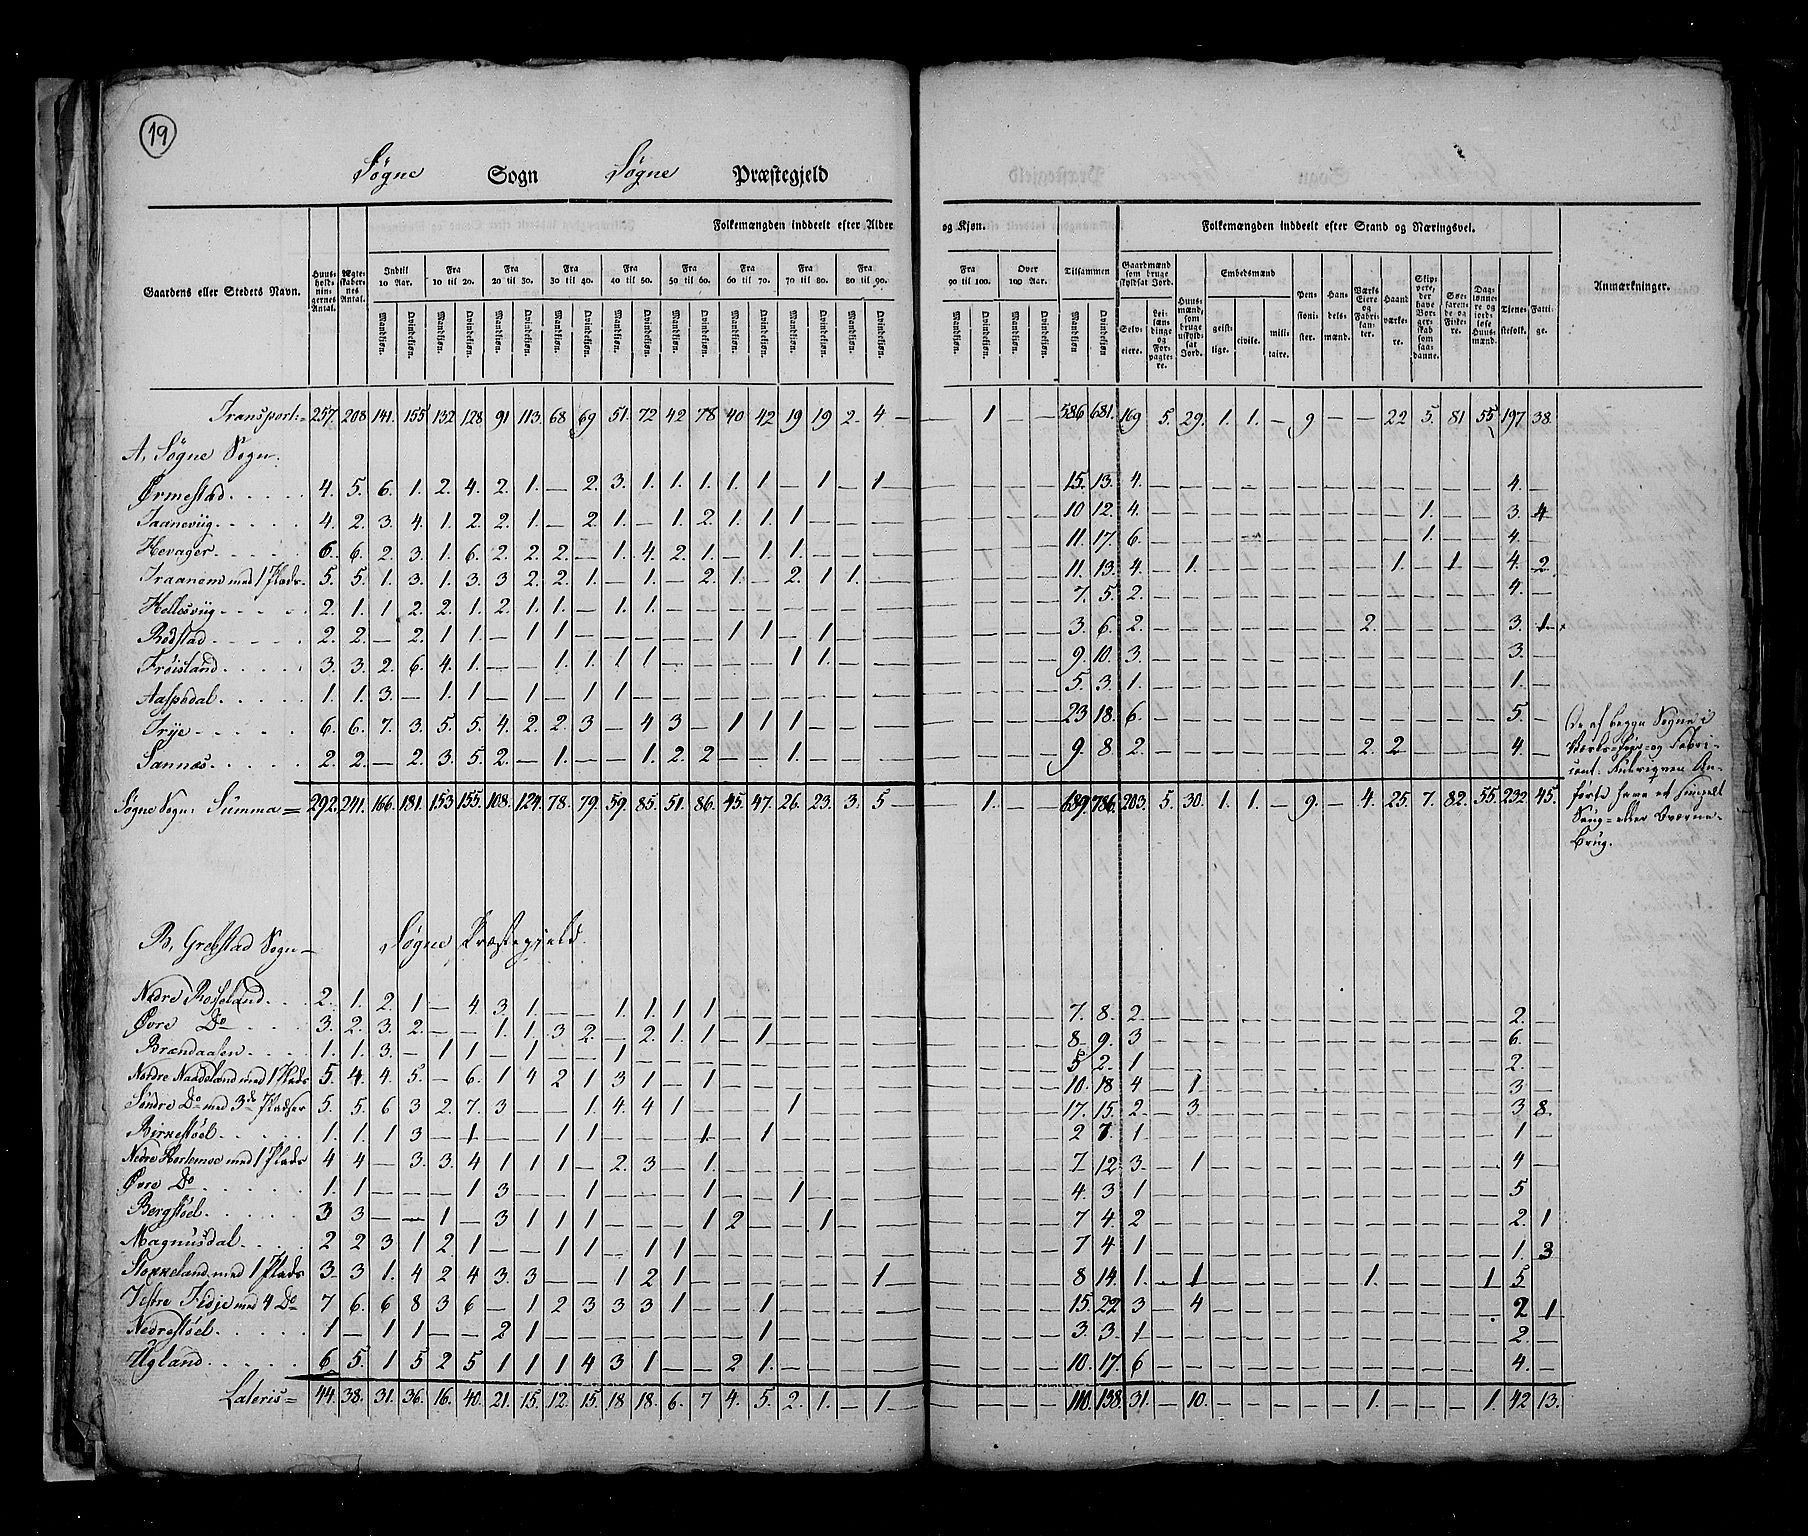 19
Søgne Sogn Søgne Præstegjeld
Gaardens eller Steders Navn. Huusholdningernes Antal. Ægteskabernes Antal. Folkemængden inddeelt efter Alder og Kjøn. Tilsammen Folkemængden inddeelt efter Stand og Næringsvei. Anmærkninger.
Indtil 10 Aar. Fra 10 til 20. Fra 20 til 30. Fra 30 til 40. Fra 40 til 50. Fra 50 til 60. Fra 60 til 70. Fra 70 til 80. Fra 80 til 90. Fra 90 til 100. Over 100 Aar. Gaardmænd som bruge skyldsat Jord. Huusmænd, som bruge uskyldsat Jord. Embedsmænd Pensionister. Handelsmænd. Værks Eiere og Fabrikanter. Haandværkere. Skippere, der have Borgerskab som saadanne. Søefarende og Fiskere. Daglønnere og jordløse Huusmænd. Tjenestefolk. Fattige.
Mandkiøn. Qvindekiøn. Selveiere. Leilændinge og Forpagtere. geistlige. civile. militaire.
Transport = 257. 208 141. 155 132 128 91 113. 68 69 51. 72 42 78 40 42 19 19 2. 4 — — 1 — — 586 681. 169 5. 29. 1. 1. — 9 — — 22 5. 81 55 197 38.
A, Søgne Sogn.
Ørmestad 4. 5. 6. 1. 2. 4. 2. 1. — 2. 3. 1. 1. 1. 1. 1. — 1. — 1 15. 13. 4. 4. —
Taanevig 4. 2. 3. 4. 1. 2. 2. 1. — 2. 1. — 1. 2. 1. 1. 1 — — — 10 12. 4. 1. 3. 4
Hevager 6. 6. 2. 3. 1. 6. 2. 2. 2. — 1. 4. 2. 1. — 1. 1. — — — 11. 17. 6. 1. 4. —
Traanem med 1 Plads 5. 5. 1. 3. 1. 3. 3 2. 2. 1. — 1. — 2. 1. — 2. 1 1. — 11. 13. 4. 1. 1. 1. 4. 2.
Hellesviig 2. 1. 1 2. 2. 1. 2. 1. 1. — 1. 1. 7. 5. 2. 4. —
Rodstad 2. 2. — 2. 1 1. — 1 1. — — — — — 1 1. — 1. — — 3. 6. 2. 2. 3. 1
Frøisland 3. 3. 2. 6. 4. 1. — — 1. 1. 1. 1 — — — — 1 1. — — 9. 10. 3. 3. —
Aaspedal 1. 1. 3 — 1. 1 — 1 — 1 1 5. 3. 1. 1. —
Trye 6. 6. 7. 3. 5. 5. 4. 2. 2. 3 — 4 3 — 1 1 1 — — — 23 18. 6. 5. —
Sannæs 2. 2. — 2. 3. 5. 2. — 1. — — 1. 2. 2 — — 1. — — — 9. 8. 2. 2. 2 4. —
Søgne Sogn: Summa = 292. 241. 166. 181. 153. 155. 108. 124. 78. 79. 59. 85. 51. 86. 45. 47. 26. 23. 3. 5 1. 689. 786. 203. 5. 30. 1. 1. — 9. — 4. 25. 7. 82. 55. 232 45.
De af begge Sogne i
Værks-Eier- og Fabri-
cant- Rubriqven An-
førte have et simpelt
Saug- eller Qværne-
Brug.
B, Grebstad Sogn — Søgne Præstegjeld.
Nedre Rosseland 2. 1. 2. 1 — 4 3. 1. — — 1. 1. 1 1 7. 8. 2. 2. —
Øvre Do 3. 2. 3. 2. — — 1. 1. 3 2. — 2. 1 1. — 1 8. 9. 3 6. —
Brændaasen 1. 1. 3. — 1 1 — 1 — — 1 5 2. 1 2. —
Nordre Naadeland med 1 Plads 5. 4. 4. 5. — 6. 1 4 2 1 3 1 — 1 10. 18. 4 — 1 3 —
Søndre Do med 3de Pladser 5. 5. 6 3 2. 7. 3 — — 1. 4. 4 1 — — — 1 17. 15. 2 — 3 3 8.
Birkestøel 1. 1. 1 3 — 1 — — 1 1 — — — 1 — 1 2 7. 1. 1 —
Nedre Hortemoe med 1 Plads 4 4 — 3. 3. 4 1 1 1 — 2. 3 — 1. 7 12 3. — 1 4 —
Øvre Do 1. 1 — — — 1 3 — — 1 — — — 1 — — 1 4. 3 1 5 —
Bergstøel 3 3 — — 1 — 3 1 1 1 — — — 1 2 — — 1 — — 7 4. 2 2. 1
Magnusdal 2 2 3 1 2 1 — — 1 1 — 1 1 7 4 1 1. 3
Stokkeland med 1 Plads 3 3 1. 4 2 4 3. 3 — — 1 2 1 — — — — — — 1 8 14. 1. — 1 1. 1 5 —
Vestre Tedje med 4 Do 7 6. 6 8 3 6 — 1 2 3 3 3 1 — — 1 15. 22 3 — 4 2 1
Nedrestøel 1 — 1 1 — — 2 1 — — — — — — — 1 3. 3. 1 2. —
Ugland 6 5. 1 5 2 5 1 1 1 4 3 1 — — 2 1. 10. 17 6 4. —
Lateris = 44. 38. 31. 36. 16. 40. 21. 15. 12. 15. 18 18. 6. 7 4. 5. 2. 1. — 1 110. 138. 31. — 10. 1. 1. 42 13.